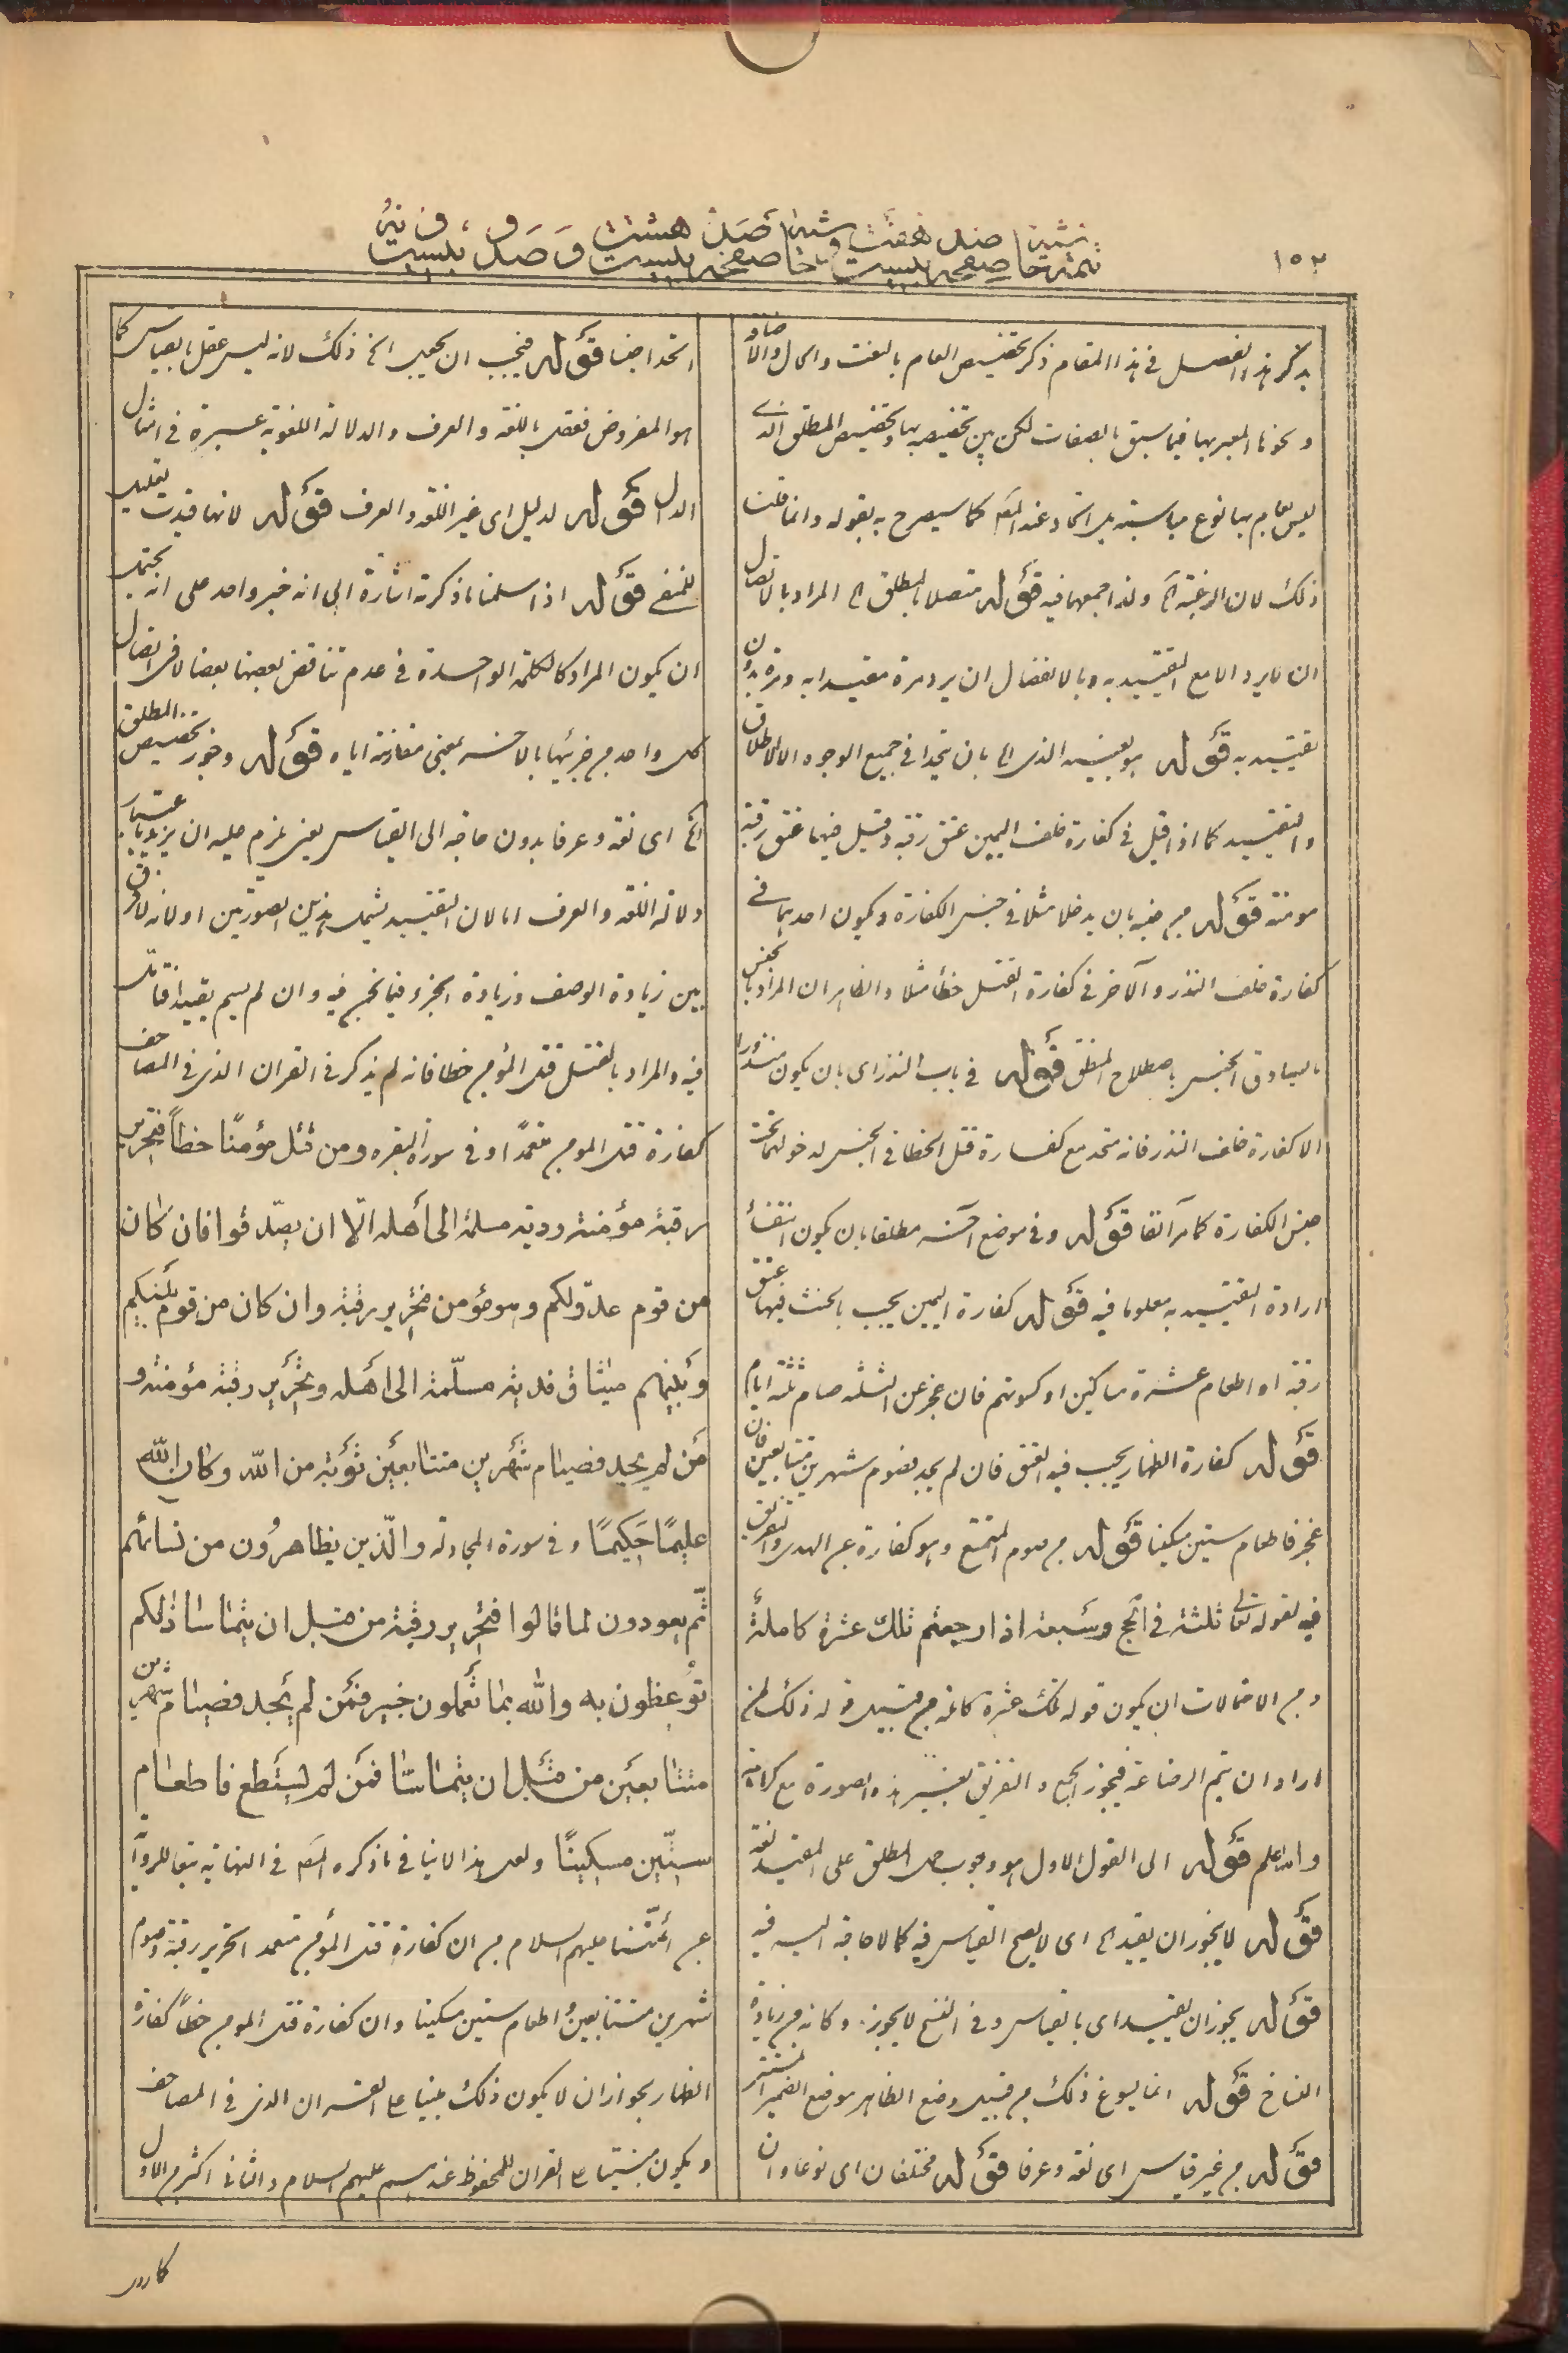 ١٥٢
يذكر هذا الفصل في هذا المقام ذكر تخصيص العام بالنعت والحال والا
ونحوها المعبر بها فيما سبق بالصفات لكن بين تخصيصه بها وتخصيص المطلق الذي
ليس بعام بها نوع مباينة بل اتحاد عند المص كما سيصرح به بقوله وانما قلنا
ذلك لان الرغبة الخ ولذا جمعهما فيه قوله متصلا بالمطلق الخ المراد بالاتصال
ان لا يرد الا مع التقييد به وبالانفصال ان يرد مرة مقيدا به ومرة بدون
تقييد به قوله هو بعينه الذي الخ بان يتحدا في جميع الوجوه الا الاطلاق
والتقييد كما اذا قيل في كفارة خلف اليمين عتق رقبة وقيل فيها عتق رقبة
مومنة قوله من جنسه بان يدخلا مثلا في جنس الكفارة ويكون احدهما في
كفارة خلف النذر والآخر في كفارة القتل خطأ مثلا والظاهر ان المراد بالجنس
ما يساوق الجنس باصطلاح المنطق قوله في باب النذر اي بان يكون منذورا
الا كفارة خلف النذر فانه متحد مع كفارة قتل الخطا في الجنس لدخولهما تحت
جنس الكفارة كما مر آنفا قوله وفي موضع آخر مطلقا بان يكون انتفاء
ارادة التقييد به معلوما فيه قوله كفارة اليمين يجب بالحنث فيها عتق
رقبة او اطعام عشرة مساكين او كسوتهم فان عجز عن الثلثة صام ثلثة ايام
قوله كفارة الظهار يجب فيه العتق فان لم يجد فصوم شهرين متتابعين فان
عجز فاطعام ستين مسكينا قوله من صوم المتمتع وهو كفارة عن الهدي والتفريق
فيه لقوله تعالى ثلثة في الحج وسبعة اذا رجعتم تلك عشرة كاملة
ومن الاحتمالات ان يكون قوله تلك عشرة كاملة من قبيل قوله ذلك لمن
اراد ان يتم الرضاعة فيجوز الجمع والتفريق بغير هذه الصورة مع كراهة
والله اعلم قوله الى القول الاول هو وجوب حمل المطلق على المقيد لغة
قوله لا يجوز ان يقيد الخ اي لا يصح القياس فيه كما لا حاجة اليه فيه
قوله يجوز ان يقيد اي بالقياس وفي النسخ لا يجوز وكانه من زيادة
النساخ قوله انما يسوغ ذلك من قبيل وضع الظاهر موضع الضمير المستتر
قوله من غير قياس اي لغة وعرفا قوله مختلفان اي نوعا وان
اتحدا جنسا قوله فيجب ان يحمل الخ ذلك لانه ليس عقل بالقياس كما
هو المفروض فنقص باللغة والعرف والدلالة اللغوية عسيرة في امثال
الدال قوله لدليل اي غير اللغة والعرف قوله لانها قيدت
قوله اذا سلمنا ما ذكرته اشارة الى انه خبر واحد على انه يحتمل
ان يكون المراد كالكلمة الواحدة في عدم تناقض بعضها بعضا لا في اتصال
كل واحد من جزئيها بالاخر بمعنى مقارنة اياه قوله وجوز تخصيص المطلق
الخ اي لغة وعرفا بدون حاجة الى القياس يعني يلزم عليه ان يزيد باعتبار
دلالة اللغة والعرف اما لان التقييد يشمل هذين الصورتين او لانه لا فرق
بين زيادة الوصف وزيادة الجزء فيما نحن فيه وان لم يسم تقييدا فتامل
فيه والمراد بالقتل قتل المؤمن خطا فانه لم يذكر في القران الذي في المصاحف
كفارة قتل المومن متعمدا وفي سورة البقره ومن قتل مؤمنًا خطأً فتحرير
رقبة مؤمنة ودية مسلمة الى أهله الّا ان يصّدقوا فان كان
من قوم عدوّ لكم وهو مؤمن فتحرير رقبة وان كان من قوم بينكم
وبينهم ميثاق فدية مسلّمة الى اهله وتحرير رقبة مؤمنة و
من لم يجد فصيام شهرين متتابعين توبة من الله وكان الله
عليمًا حكيمًا وفي سورة المجادلة والّذين يظاهرون من نسائهم
ثّم يعودون لما قالوا فتحرير رقبة من قبل ان يتماسا ذلكم
توعظون به والله بما تعملون خبير فمن لم يجد فصيام شهرين
متتابعين من قبل ان يتماسّا فمن لم يستطع فاطعام
ستّين مسكينًا ولعل هذا لا ينافي ما ذكره المص في النهاية تبعا للروا
عن أئمّتنا عليهم السلام من ان كفارة قتل المؤمن متعمدا تحرير رقبة وصوم
شهرين متتابعين واطعام ستين مسكينا وان كفارة قتل المومن خطأ كفارة
الظهار بجواز ان لا يكون ذلك مبنيا على القران الذي في المصاحف
ويكون مبنيا على القران المحفوظ عندهم عليهم السلام والثاني اكثر من الاول